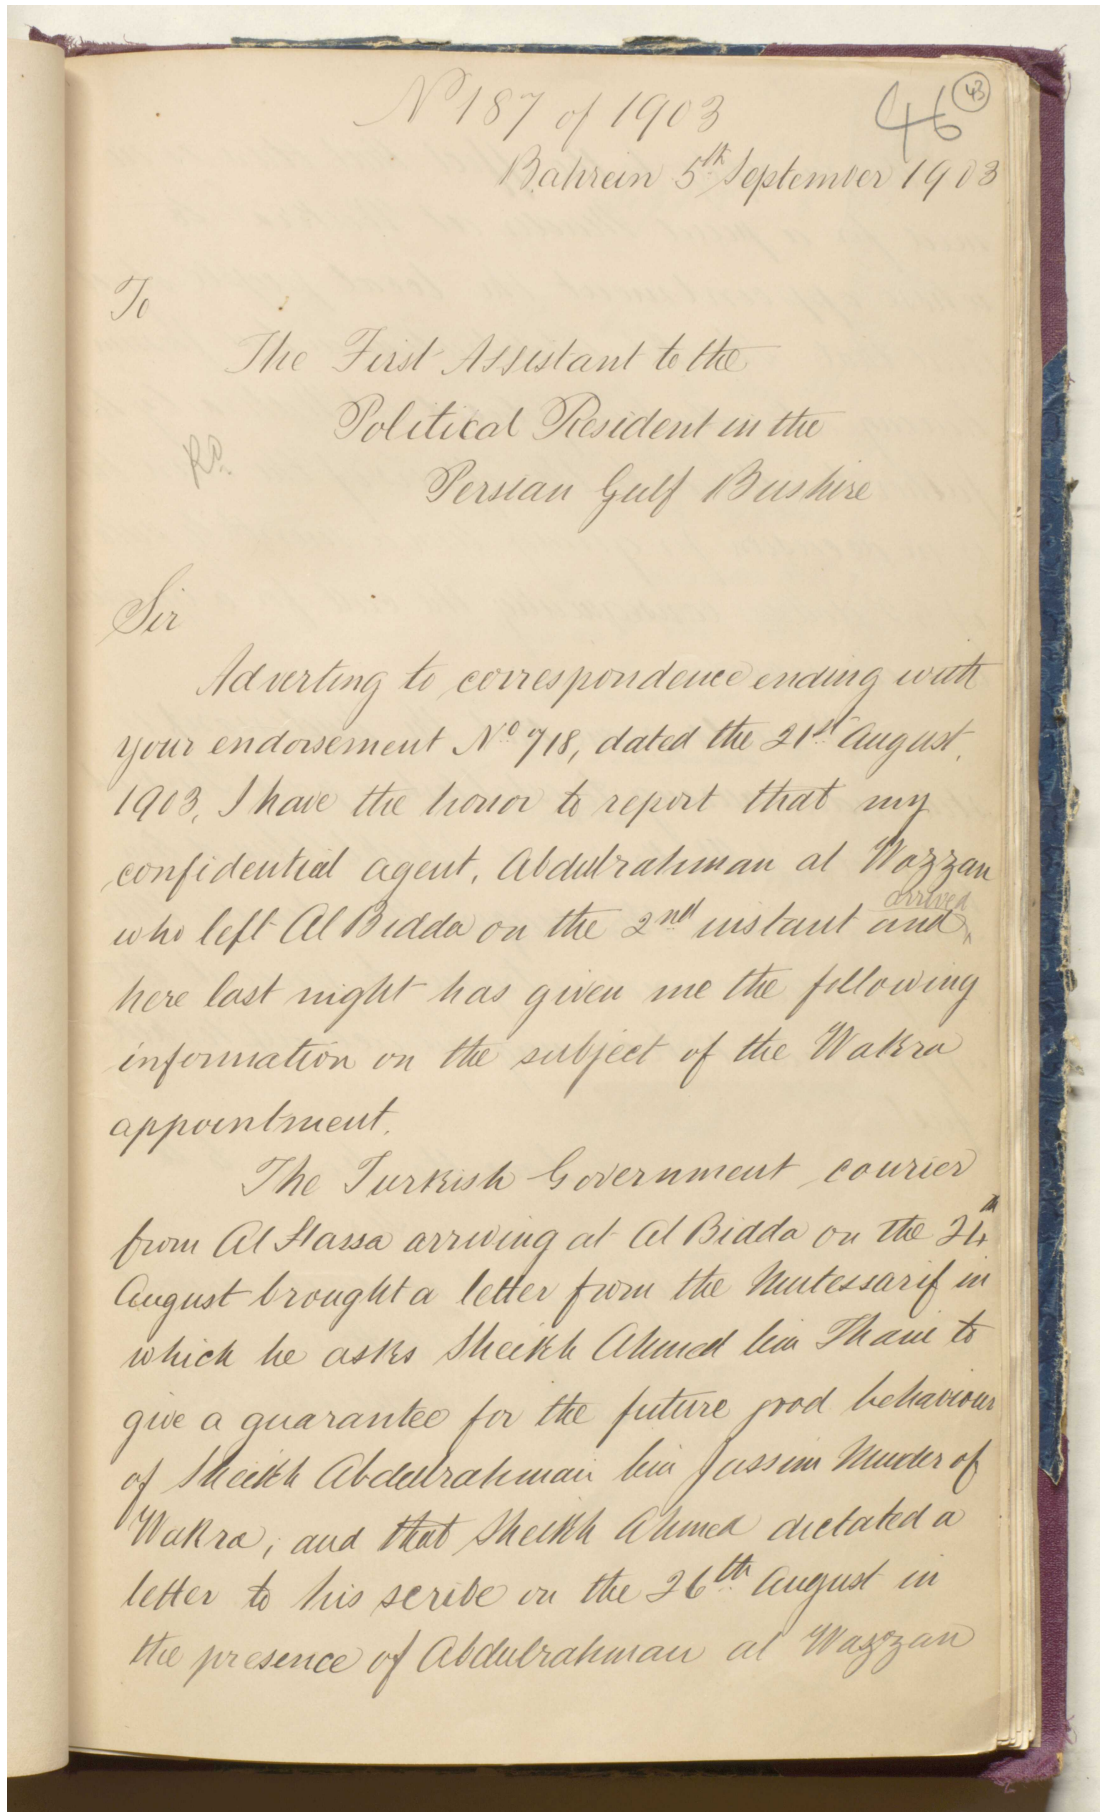 Nº 187 of 1903
46
43
Bahrein 5th September 1903
To
The First Assistant to the
Political Resident in the
Persian Gulf Bushire
Sir
Adverting to correspondence ending with
your endorsement Nº 718, dated the 21st August,
1903, I have the honor to report that my
confidential agent, Abdulrahman al Wazzan
who left Al Bidda on the 2nd instant and arrived
here last night has given me the following
information on the subject of the Wakra
appointment.
The Turkish Government courier
from Al Hassa arriving at Al Bidda on the 24th
August brought a letter from the Mutessarif in
which he asks Sheikh Ahmed bin Thani to
give a guarantee for the future good behaviour
of Sheikh Abdulrahman bin Jassim Mudder of
Wakra, and that Sheikh Ahmed dictated a
letter to his scribe on the 26th August in
the presence of Abdulrahman al Wazzan